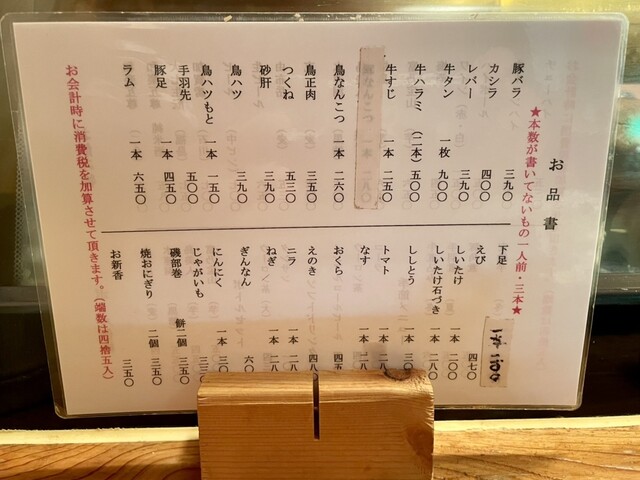 お品書
★本数が書いてないもの一人前・三本★
豚バラ 三九〇
カシラ 四〇〇
レバー 三九〇
牛タン 一枚 九〇〇
牛ハラミ (二本) 五〇〇
牛すじ 一本 二五〇
鳥なんこつ 一本 二六〇
鳥正肉 三五〇
つくね 五三〇
砂肝 三九〇
鳥ハツ 三九〇
鳥ハツもと 一本 一五〇
手羽先 五〇〇
豚足 一本 四五〇
ラム 一本 六五〇
下足
えび 四七〇
しいたけ 一本 二〇〇
しいたけ石づき 一本
ししとう 一本 三〇
トマト 一本 二八
なす 一本 二八
おくら 四五
えのき 四八
ニラ 一本 二八
ねぎ 一本 二八
ぎんなん 六〇
にんにく 一本 三〇
じゃがいも 三三
磯部巻 餅二個 三五〇
焼おにぎり 二個 三五〇
お新香 三五〇
お会計時に消費税を加算させて頂きます。(端数は四捨五入)